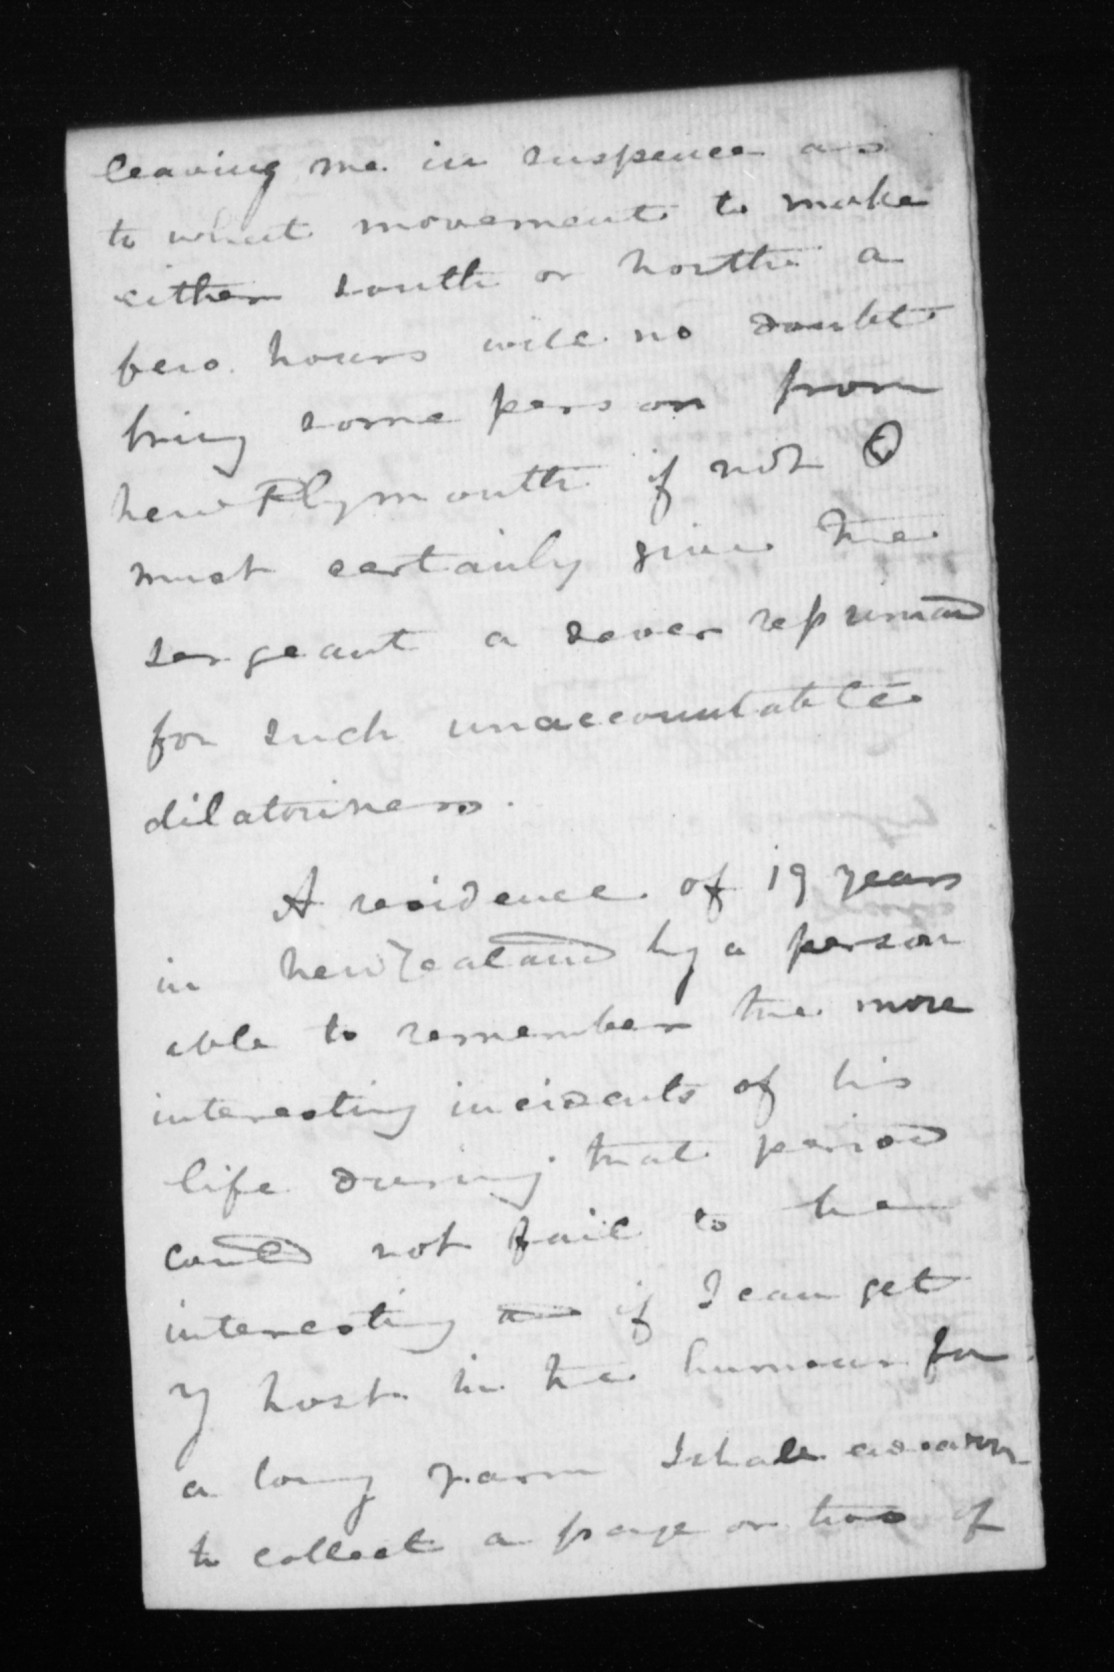 leaving me in suspence as
to what movement to make
either south or north a
few hours will no doubt
bring some person from
New Plymouth if not I
must certainly give the
sergeant a sever repriman
for such unaccountable
dilatoriness.
A residence of 19 years
in New Zealand by a person
able to remember the more
interesting incidents of his
life during that period
could not fail to be
interesting if I can get
my host in the humour for
a long yarn I shall
to collect a page or two of